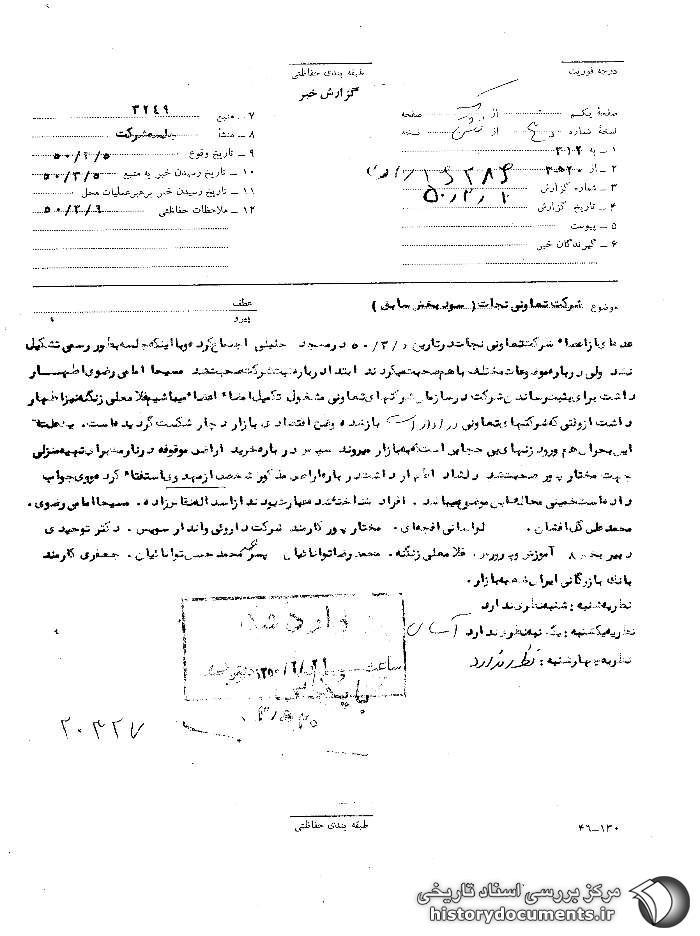 درجه فوریت
طبقه بندی حفاظتی
گزارش خبر
صفحهٔ یکم از صفحه
نسخهٔ شماره از نسخه
۱ ـ به ۳۱۲
۲ ـ از
۳ ـ شماره گزارش
۴ ـ تاریخ گزارش
۵ ـ پیوست
۶ ـ گیرندگان خبر
۷ ـ منبع ۳۲۴۹
۸ ـ منشأ جلسه شرکت
۹ ـ تاریخ وقوع ۵۰/۳/۵
۱۰ ـ تاریخ رسیدن خبر به منبع ۵۰/۳/۵
۱۱ ـ تاریخ رسیدن خبر برهبر عملیات محل
۱۲ ـ ملاحظات حفاظتی ۵۰/۳/۹
موضوع شرکت تعاونی نجات ( سود بخش سابق )
عطف
پیرو
عده‌ای از اعضاء شرکت تعاونی نجات در تاریخ ۵۰/۳/۵ در مسجد اجتماع کرده و با اینکه جلسه بطور رسمی تشکیل
نشد ولی درباره موضوعات مختلف با هم صحبت میکردند ابتدا درباره شرکت صحبت شد مسیحا امامی رضوی اظهار
داشت برای بثبت رساندن شرکت در سازمان شرکتهای تعاونی مشغول تکمیل امضاء اعضاء میباشیم غلامعلی زنگنه نیز اظهار
داشت از وقتی که شرکتهای تعاونی در باز شده وضع اقتصادی بازار دچار شکست گردیده است. علت
این بحران هم ورود زنهای بی حجابی است که به بازار میروند سپس درباره خرید اراضی موقوفه در نارمک برای تهیه منزل
جهت مختار پور صحبت شد اظهار داشت درباره اراضی مذکور شخصا از مهدوی استفتاء کرده وی جواب
داده است خمینی مخالف این موضوع میباشد . افراد شناخته شده عبارت بودند از اسداله مسیحا امامی رضوی .
محمد علی گل افشان . لواسانی افجه‌ای . مختار پور کارمند شرکت داروئی واندار سویس . دکتر توحیدی
دبیر بخش ۸ آموزش و پرورش . غلامعلی زنگنه . محمد رضا توانائیان پسر محمد حسن توانائیان . جعفری کارمند
بانک بازرگانی ایران شعبه بازار .
نظریه شنبه : شنبه نظری ندارد
نظریه یکشنبه : یکشنبه نظری ندارد آسان
نظریه چهارشنبه : نظری ندارد
وارد شد
ساعت
۲۰۳۲۷
طبقه بندی حفاظتی
۴۶-۱۳۰
مرکز بررسی اسناد تاریخی
historydocuments.ir